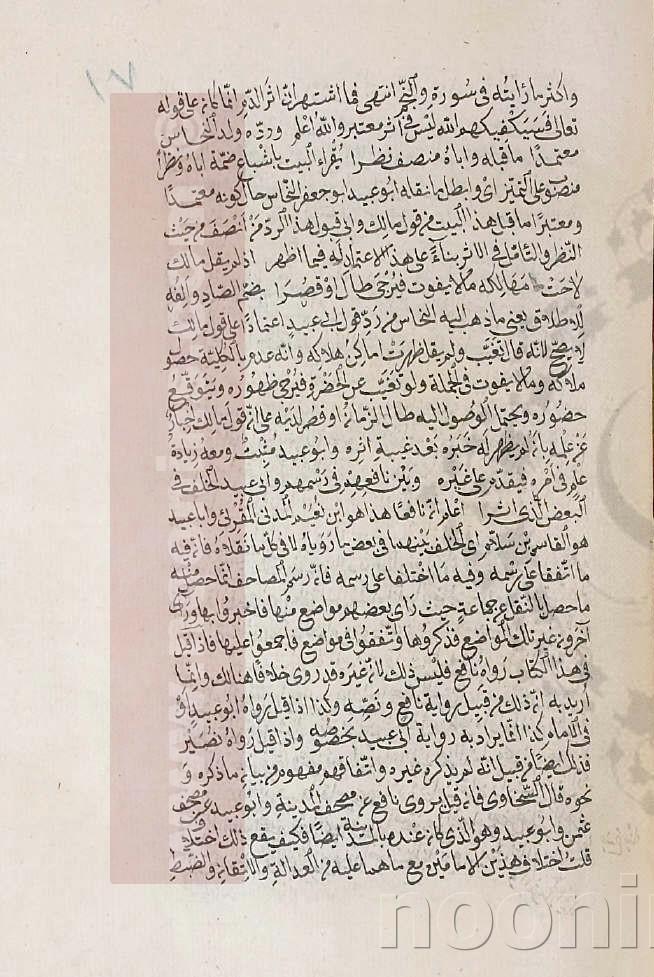 ١٧
واكثر ما رأيته فى سورة والنجم انتهى فما اشتهر ان اثر الدم انما كان على قوله
تعالى فسيكفيكهم الله ليس فى اثر معتبر والله اعلم ورده ولد النحاس
معتمدا ما قبله واباه منصف نظرا يقراء البيت باشباع ضمة اباه ونظرا
منصوب على التميز اى وابطل ما نقله ابو عبيد ابو جعفر النحاس حال كونه معتمدا
ومعتبرا ما قبل هذا البيت من قول مالك وابى قبول هذا الرد من انصف من حيث
النظر والتأمل فى الاثر بناءً على هذا الاعتماد له فيما اظهر اذ لم يقل مالك
لاحت مهالكه ما لا يفوت فيرجى طال او قصرا بضم الصاد والفه
للاطلاق يعنى ما ذهب اليه النحاس من رد قول ابى عبيد اعتمادا على قول مالك
لا يصح لانه قال تغيب ولم يقل ظهرت اماكن هلاكه وانه عدم بالكلية حصول
ملاكه وما لا يفوت فى الجملة ولو تغيب عن الحضرة فيرجى ظهوره ويتوقع
حضوره ويحتمل الوصول اليه طال الزمان او قصر لديه على ان قول مالك اخبار
عن علمه بانه لم يظهر له خبره بعد غيبة اثره وابو عبيد مثبت ومعه زيادة
علم فى امره فيقدم على غيره وبين نافعهم فى رسمهم وابى عبيد الخلف فى
البعض الذى اثرا اعلم ان نافعا هذا هو ابن نعيم المدنى المقرئ وابا عبيد
هو القاسم بن سلام اى الخلف بينهما فى بعض ما روياه لا فى كل ما نقلاه فانه فيه
ما اتفقا على رسمه وفيه ما اختلفا على رسمه فان رسم المصاحف انما حصل منه
ما حصل بالنقل عن جماعة حيث راى بعضهم مواضع منها فاخبروا بها وراى
آخرون غير تلك المواضع فذكروها واتفقوا فى مواضع فاجمعوا عليها فاذا قيل
فى هذا الكتاب رواه نافع فليس ذلك لان غيره قد روى خلافا هنالك وانما
اريد به ان ذلك من قبيل رواية نافع ونصه وكذا اذا قيل رواه ابو عبيد او
فى الامام كذا انما يراد به رواية ابى عبيد بخصوصه واذا قيل رواه نصير
فذلك ايضا من قبيل انه لم يذكره غيره واتفاقهم مفهوم من بيان ما ذكره و
نحوه قال السخاوى فان قيل يروى نافع عن مصحف المدينة وابو عبيد عن مصحف
عثمن وابو عبيد وهو الذى كان عندهم بالمدينة ايضا فكيف يقع ذلك اختلاف
قلت اختلاف هذين الامامين مع ما هما عليه من العدالة والاتقان والضبط